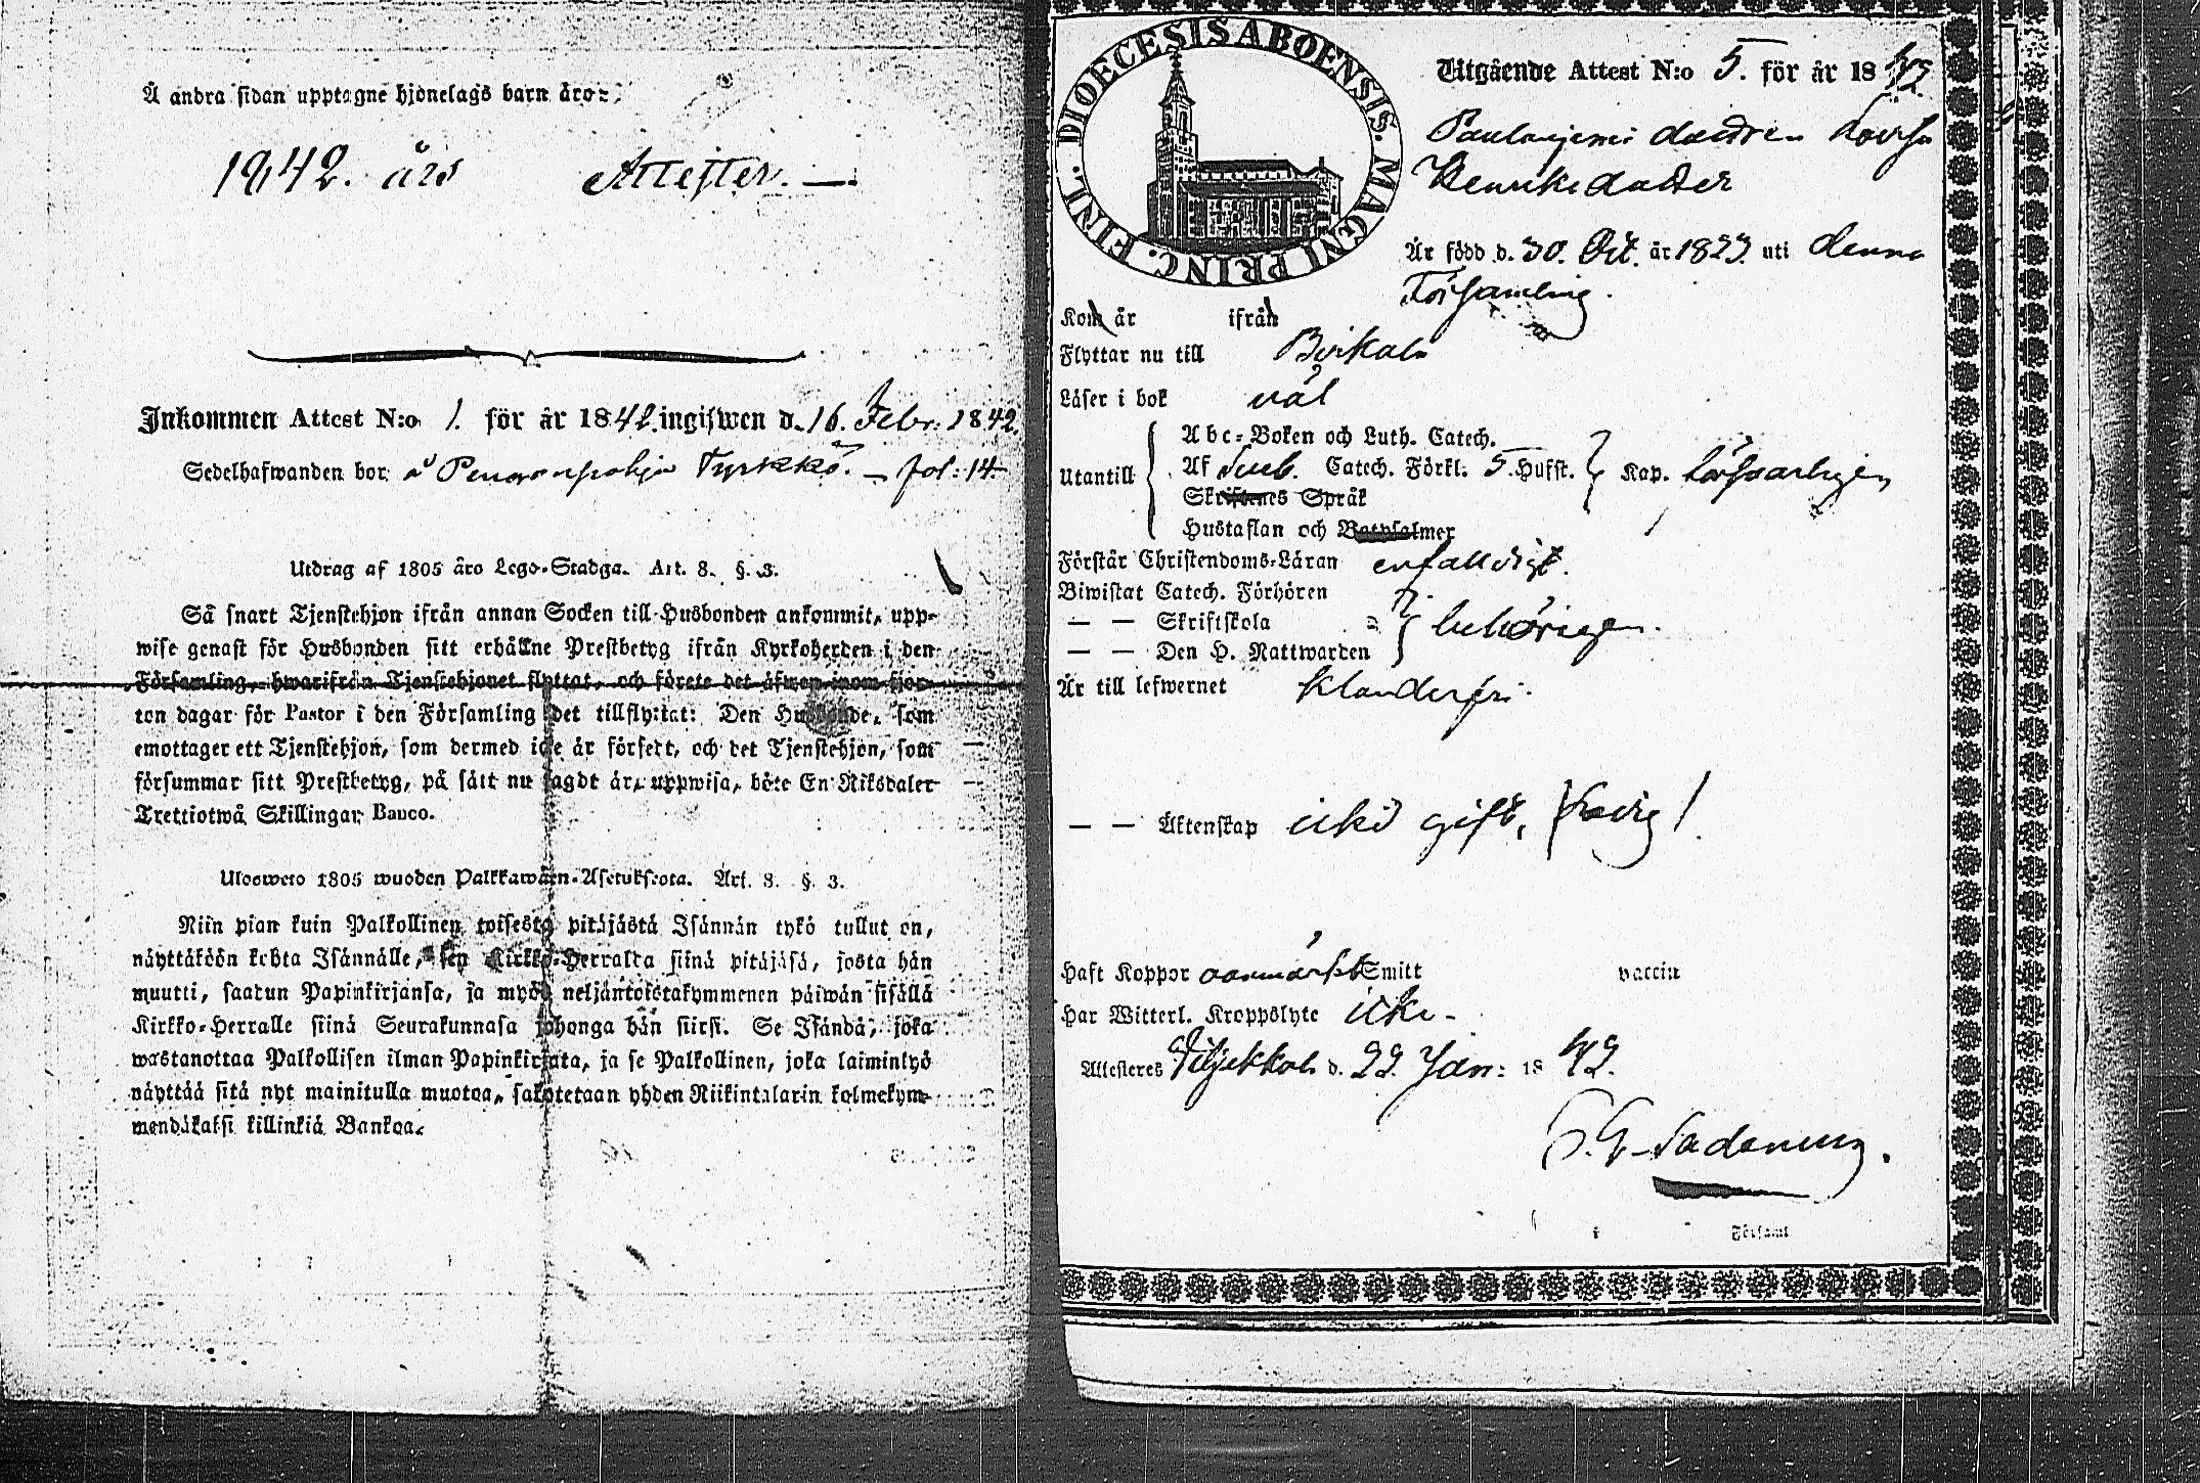 Å andra sidan upptagne hjonelags barn äro:
1842. års Attester. —
Inkommen Attest N:o 1. för år 1842. ingifwen d. 16. Febr: 1842.
Sedelhafwanden bor å Tyrkkö. — fol: 14
Utdrag af 1805 års Lego-Stadga. Art. 8. §. 3.
Så snart Tjenstehjon ifrån annan Socken till Husbonden ankommit, upp-
wise genast för Husbonden sitt erhållne Prestbetyg ifrån Kyrkoherden i den
Församling, hwarifrån Tjenstehjonet flyttat, och förete det äfwen inom fjor-
ton dagar för Pastor i den Församling det tillflyttat: Den Husbonde, som
emottager ett Tjenstehjon, som dermed icke är försedt, och det Tjenstehjon, som
försummar sitt Prestbetyg, på sätt nu sagdt är, uppwisa, böte En Riksdaler
Trettiotwå Skillingar Banco.
Uloswето 1805 wuoden Palkkawäen-Asetuksesta. Art. 8. §. 3.
Niin pian kuin Palkollinen toisesta pitäjästä Isännän tykö tullut on,
näyttäköön kohta Isännälle, sen Kirkko-Herralta siinä pitäjäsä, josta hän
muutti, saadun Papinkirjansa, ja myös neljäntoistakymmenen päiwän sisällä
Kirkko-Herralle siinä Seurakunnasa johonga hän siirsi. Se Isändä, joka
wastanottaa Palkollisen ilman Papinkirjata, ja se Palkollinen, joka laiminlyö
näyttää sitä nyt mainitulla muotoa, sakotetaan yhden Riikintalarin kolmekym-
mendäkaksi killinkiä Bankoa.
DIOECESIS ABOENSIS. MAGNI PRINC. FINL.
Utgående Attest N:o 5. för år 1842.
dottren Lovisa
Henriksdotter
Är född d. 30. Oct. år 1823 uti denna
Församling.
Kom år ifrån
Flyttar nu till Birkala
Läser i bok väl
Utantill
Abc-Boken och Luth. Catech.
Af Sveb. Catech. Förkl. 5. Hufst. Kap. försvarligen
Skriftenes Språk
Hustaflan och Botpsalmer
Förstår Christendoms-Läran enfalldigt.
Biwistat Catech. Förhören
— — Skriftskola behörigen.
— — Den H. Nattwarden
Är till lefwernet klanderfri.
— — Äktenskap icke gift, ledig
Haft Koppor oanmärkt Smitt vaccin
Har Witterl. Kroppslyte icke.
Attesteres Viljakkala d. 22. Jan: 1842.
Församl